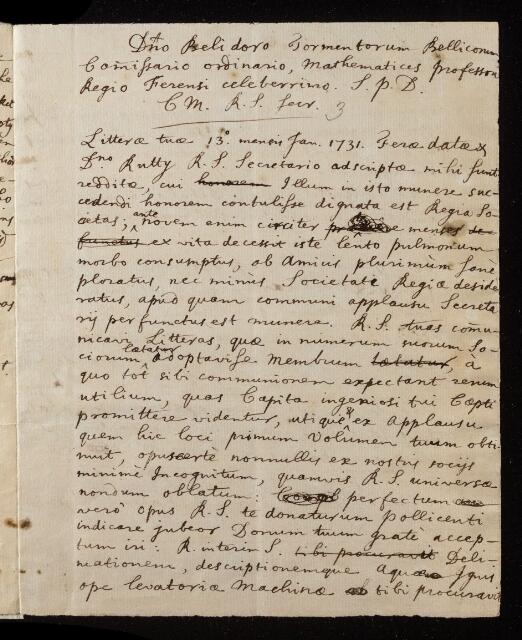 Dño Belidoro Tormentorum Bellicorum
Com̃issario ordinario, Mathematices professori
Regio Ferensi celeberrimo. S. P. D.
C M. R. S. Secr. 3
Litteræ tuæ 13.° mensis Jan. 1731. Feræ datæ &
Dño Rutty R. S. Secretario adscriptæ mihi sunt
redditæ, cui honorem Illum in isto munere suc-
cedendi honorem contulisse dignata est Regia So-
cietas; ante novem enim circiter menses de
functus ex vita decessit iste lento pulmonum
morbo consumptus, ab Amicis plurimum sanè
ploratus, nec minùs Societate Regiæ deside
ratus, apud quam communi applausu Secreta
rij perfunctus est munere. R. S. tuas comu-
nicavi Litteras, quæ in numerum suorum So-
ciorum lætatur adoptavisse membrum lætatur, à
quo tot sibi communionem expectant rerum
utilium, quas Capita ingeniosi tui Cæpti
promittere videntur, utique & ex Applausu
quem hic loci primum Volûmen tuum obti-
nuit, opus certe nonnullis ex nostris socijs
minimè Incognitum, quamvis R. S. universæ
nondum oblatum: perfectum
verò opus R. S. te donaturum pollicenti
indicare jubeor Donum tuum gratè accep-
tum iri: R. interim S. tibi procuravit Deli-
neationem, descriptionemque Aquæ Ignis
ope levatoriæ Machinæ tibi procuravit